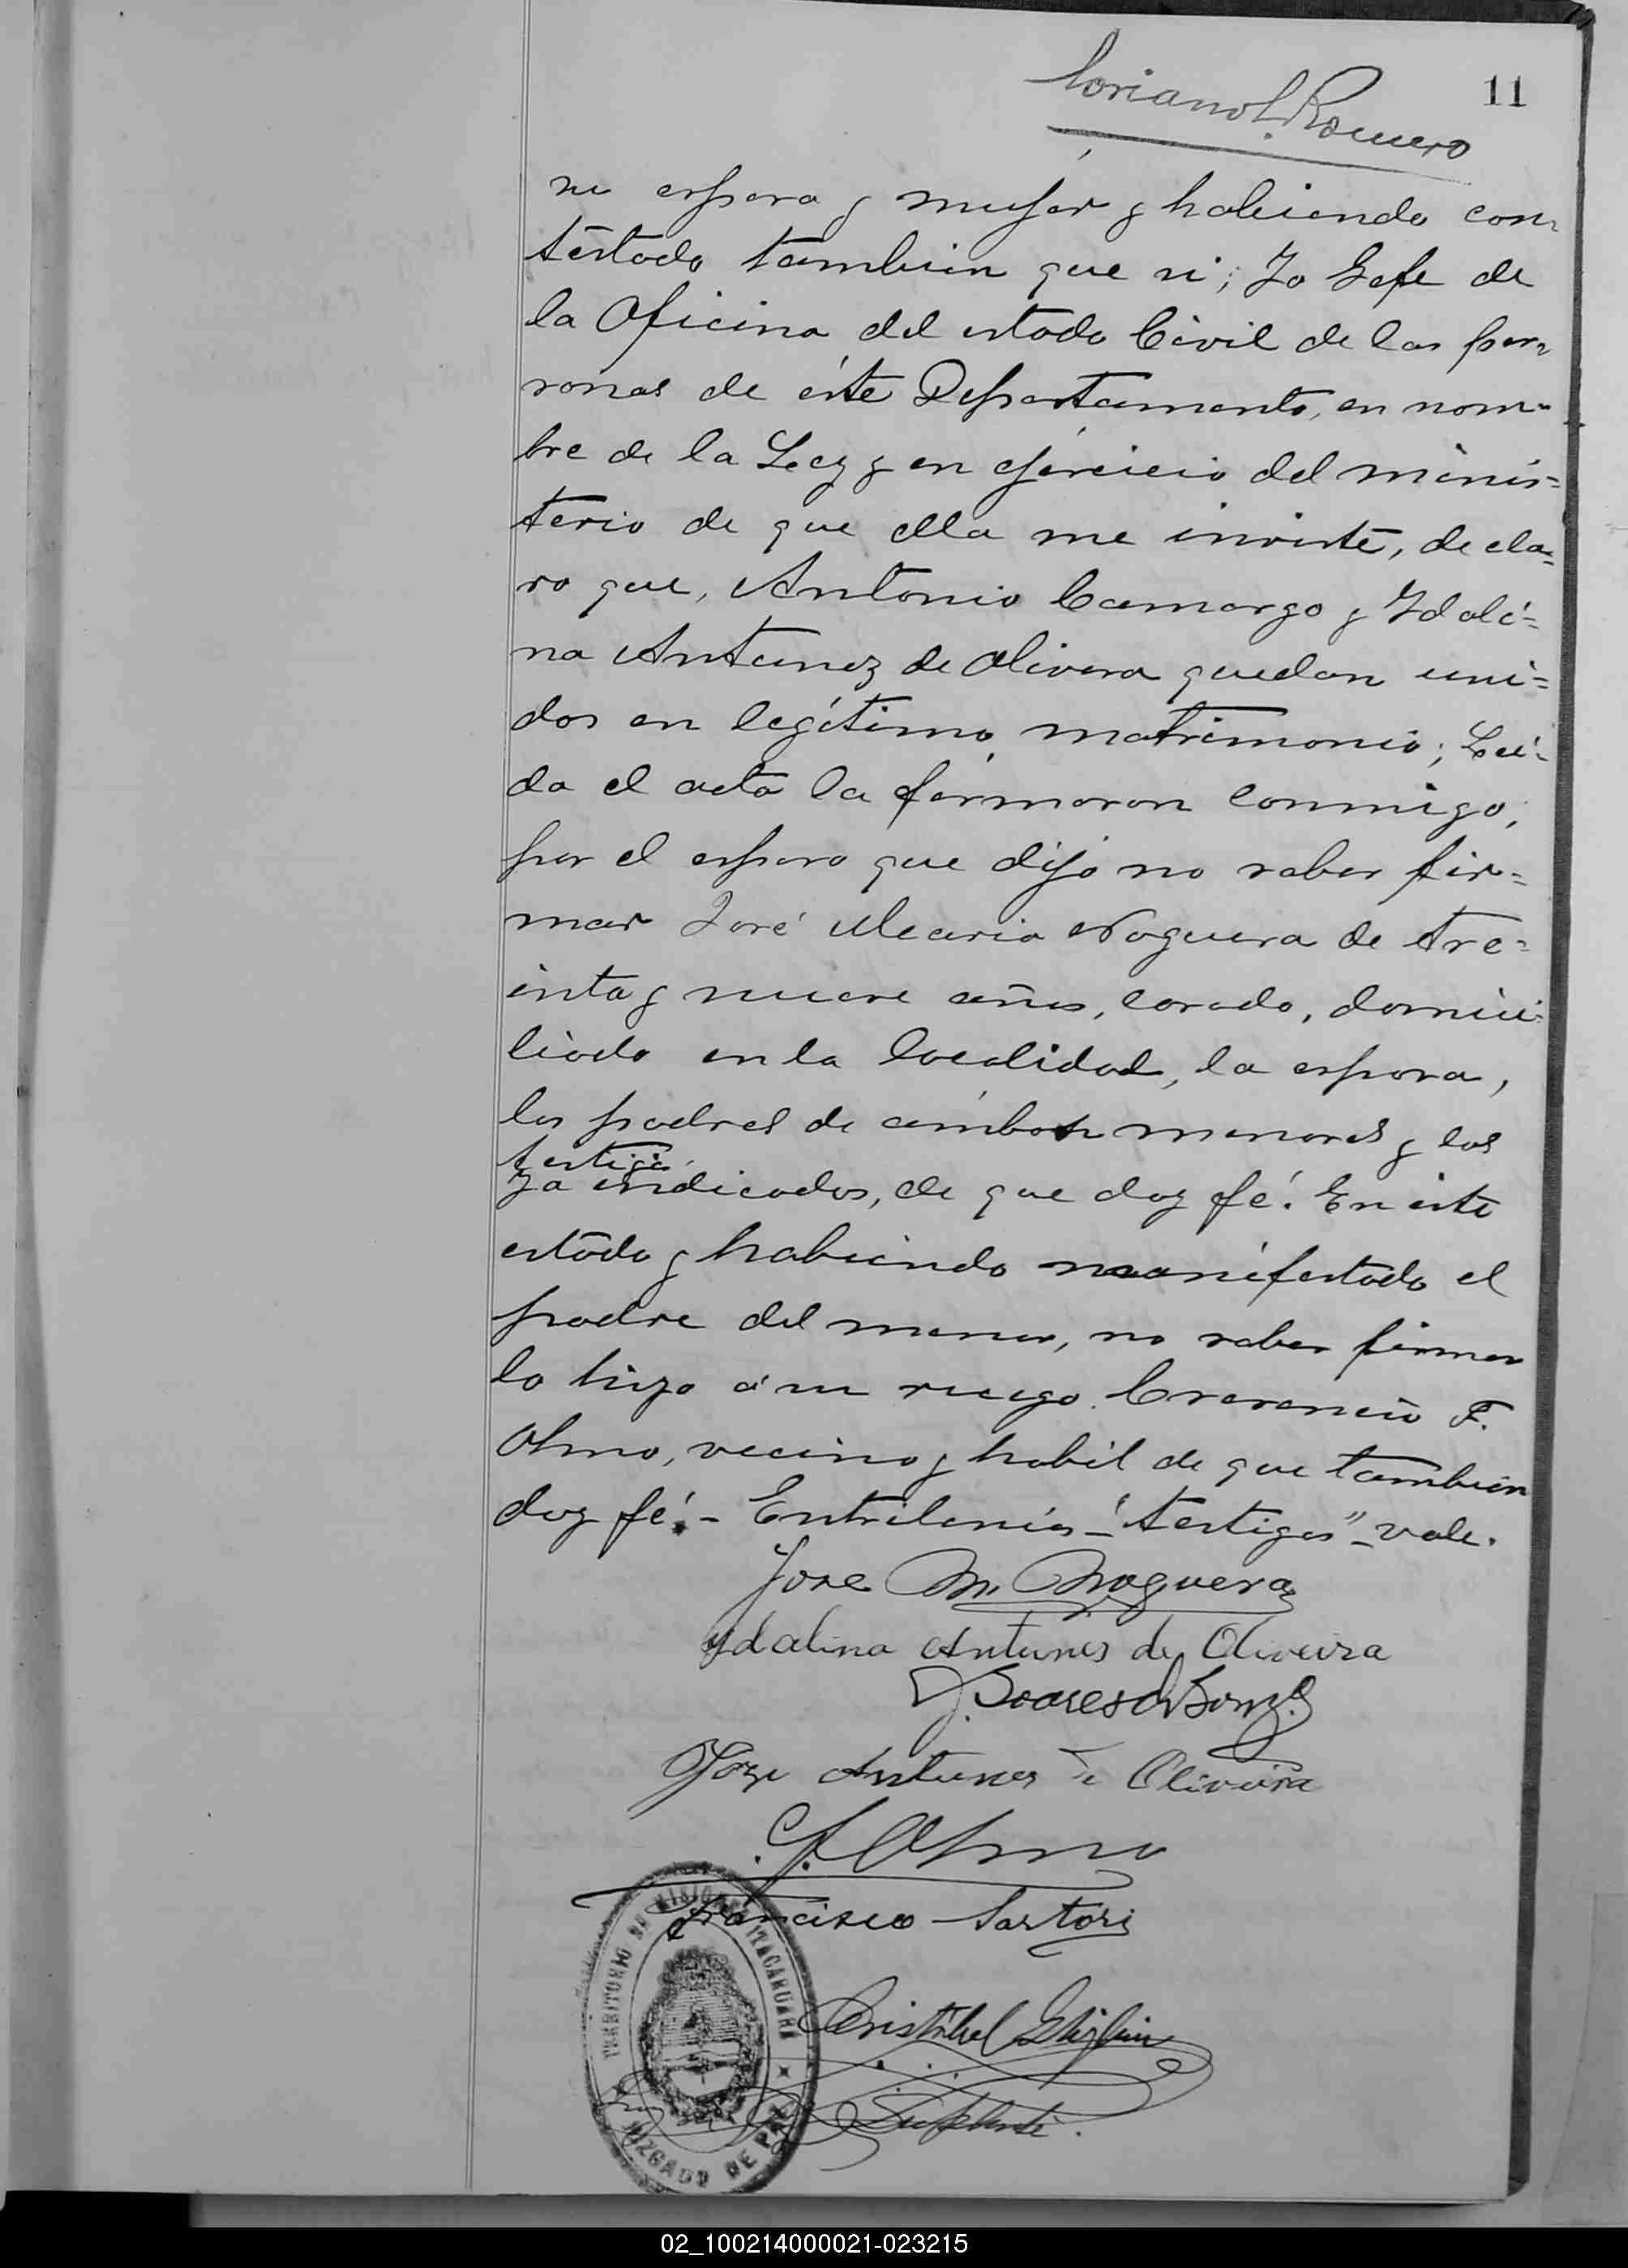 Coriano L. Romero
11
su esposa y mujer y habiendo con-
testado tambien que si; Yo Gefe de
la Oficina del estado Civil de las per-
sonas de éste Departamento, en nom-
bre de la Ley y en ejercicio del minis=
terio de que ella me inviste, decla=
ro que, Antonio Camargo y Idali=
na Antunez de Olivera quedan uni=
dos en legítimo matrimonio; Leí-
da el acta la firmaron conmigo;
por el esposo que dijo no saber fir=
mar José Maria Noguera de tre=
inta y nueve años, casado, domici-
liado en la localidad, la esposa,
los padres de ambos menores y los
testigos
ya indicados, de que doy fé. En este
estado y habiendo manifestado el
padre del menor, no saber firmar
lo hizo á su ruego Cresencio F.
Olmo, vecino y habil de que tambien
doy fé. - Entrelineas - "testigos" - vale.
Jose M. Noguera
Ydalina Antunes de Oliveira
J. Soares
Joze Antunes de Oliveira
C. F. Olmo
Francisco Sartori
TERRITORIO DE MISIONES ITACARUARE
JUZGADO DE PAZ
Cristobal
Suplente.
02_100214000021-023215